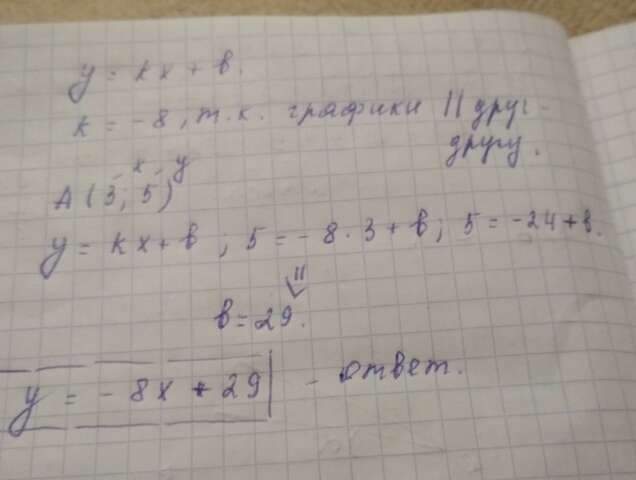 y = kx + b.
k = -8, т.к. графики || друг-
другу.
x y
A (3; 5)
y = kx + b; 5 = -8·3 + b; 5 = -24 + b.
⇓
b = 29.
y = -8x + 29 - ответ.